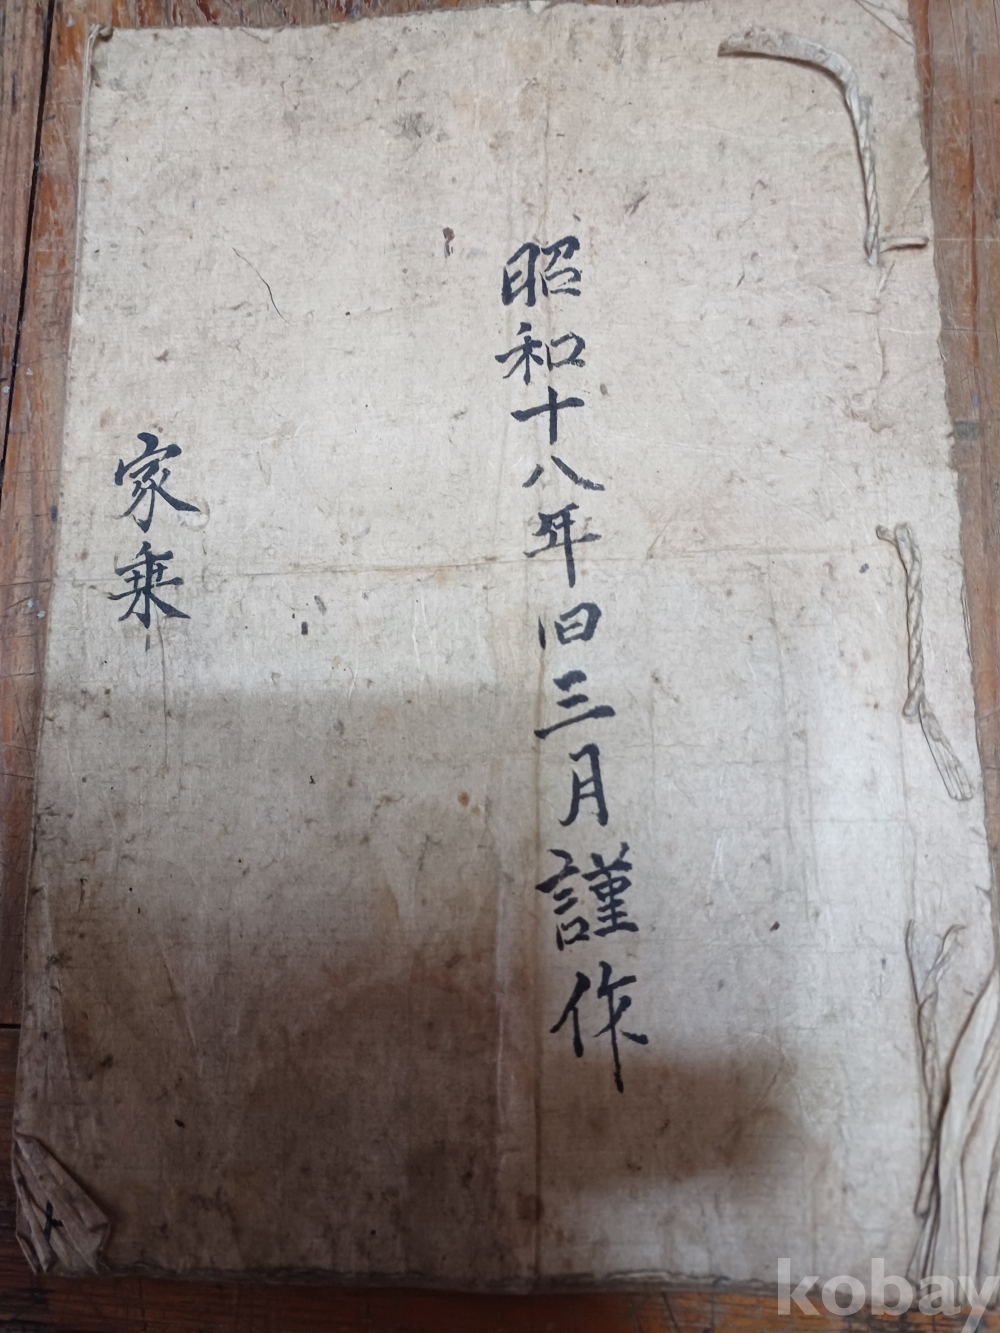 昭和十八年旧三月謹作
家乗
kobay